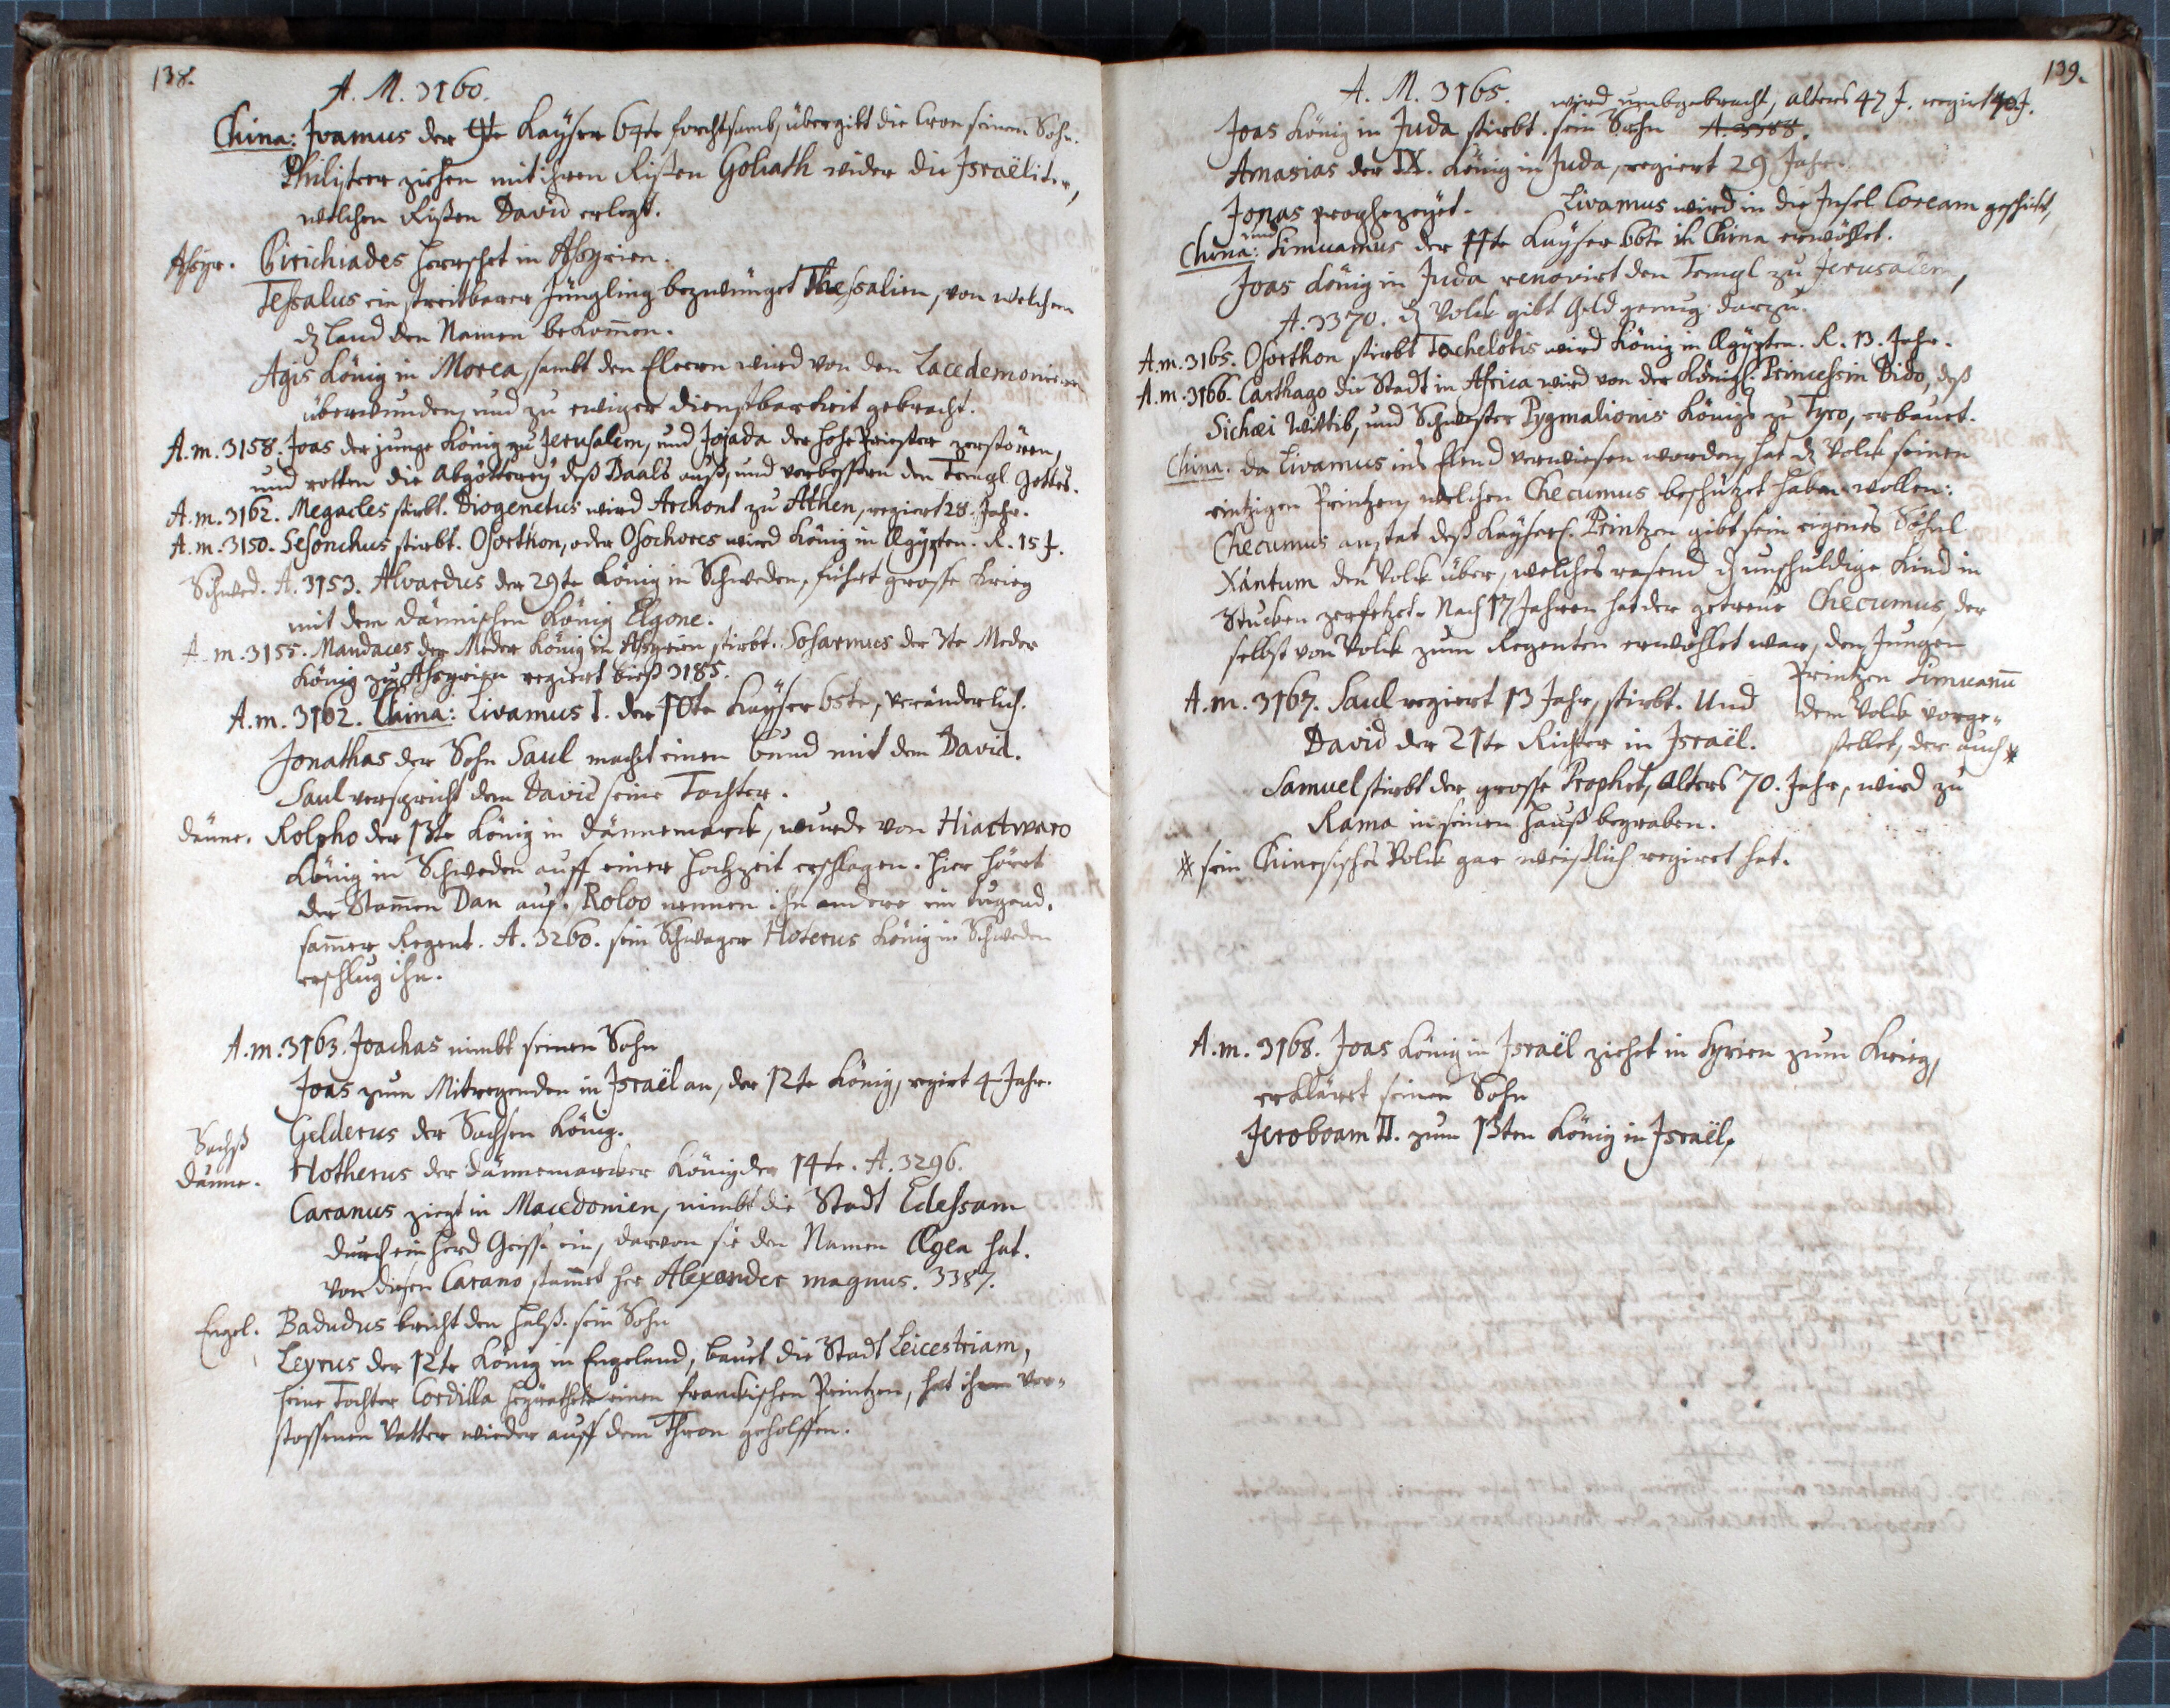 138.
A. M. 3160.
China: Ivamus der 9te Kayser 64te forchtsamb, übergibt die Cron seinem Sohn.
Philister ziehen mit ihren Rißen Goliath wider die Israëliter,
welchen Rißen David erlegt.
Assyr. Pirichiades herrschet in Assyrien.
Tessalus ein streitbarer Jüngling bezwünget Thessalien, von welchem
dz Land den Namen bekom̄en.
Agis König in Morea, sambt den Eleern wird von den Lacedemoniern
überwunden, und zu ewiger dienstbarkeit gebracht.
A. m. 3158. Joas der junge König zu Jerusalem, und Jojada der hohe Priester zerstören,
und rotten die Abgötterey deß Baals auß, und verbessern den Templ Gottes.
A. m. 3162. Megacles stirbt. Diogenetus wird Archont zu Athen, regiert 28. Jahr.
A. m. 3150. Sesonchus stirbt. Osorthon, oder Osochores wird König in Ægypten. R. 15 J.
Schwed. A. 3153. Alvardus der 29te König in Schweden, führt grosse Krieg
mit dem dännischen König Elgone.
A. m. 3155. Mandaces der Meder König in Assyrien stirbt. Sosarmus der 3te Meder
König zu Assyrien regiert biß 3185.
A. m. 3162. China: Livamus I. der 10te Kayser 65te, veränderlich.
Jonathas der Sohn Saul macht einen bund mit dem David.
Saul verspricht dem David seine Tochter.
Dänne. Rolpho der 13te König in Dännemarck, wurde von Hiartwaro
König in Schweden auff einer Hochzeit erschlagen. Hier hört
der Stam̄en Dan auf. Roloo nennen ihn andere ein tugend-
sam̄er Regent. A. 3260. sein Schwager Hoterus König in Schweden
erschlug ihn.
A. m. 3163. Joachas nimbt seinen Sohn
Joas zum Mitregenden in Israël an, der 12te König, regirt 4 Jahr.
Sachß Gelderus der Sachsen König.
Dänne. Hotherus der Dännemarcker König der 14te. A. 3296.
Caranus zieht in Macedonien, nimbt die Stadt Edessam
durch ein Herd Geissе ein, darvon sie den Namen Ægea hat.
von diesen Carano stammet her Alexander magnus. 3387.
Engel. Badudus bricht den Halß. sein Sohn
Leyrus der 12te König in Engeland, bauet die Stadt Leicestriam,
seine Tochter Cordilla heyrathete einen franckischen Printzen, hat ihren ver-
stossenen Vatter wieder auff dem Thron geholffen.
139.
A. M. 3165. wird umbgebracht, alters 47 J. regirt 40 J.
Joas König in Juda stirbt. sein Sohn A. 3388.
Amasias der IX. König in Juda, regiert 29 Jahr.
Jonas prophezeyet. Livamus wird in die Insel Coream geschickt,
China: und Simuamus der 11te Kayser 66te in China erwöhlet.
Joas König in Juda renovirt den Templ zu Jerusalem,
A. 3370. dz Volck gibt Geld genug darzu.
A. m. 3165. Osorthon stirbt Tachelotis wird König in Ægypten. R. 13. Jahr.
A. m. 3166. Carthago die Stadt in Africa wird von der Königl. Princessin Dido, deß
Sichæi Wittib, und Schwester Pygmalionis Königs zu Tyro, erbauet.
China. da Livamus ins Elend verwiesen worden, hat dz Volck seinen
eintzigen Printzen, welchen Checumus beschützet haben wollen:
Checumus anstat deß Kayserl. Printzen gibt sein eigenes Söhnl
Xantum den Volck über, welches rasend dz unschuldige Kind in
Stucken zerfetzet. Nach 17 Jahren hat der getreue Checumus, der
selbst von Volck zum Regenten erwöhlet war, den Jungen
Printzen Simuanū
A. m. 3167. Saul regiert 13 Jahr, stirbt. Und dem Volck vorge-
David der 21te Richter in Israël. stellet, der auch *
Samuel stirbt der grosse Prophet, alters 70. Jahr, wird zu
Rama in seinen Hauß begraben.
* sein Chinesisches Volck gar weißlich regiret hat.
A. m. 3168. Joas König in Israël ziehet in Syrien zum Krieg,
erklärt seinen Sohn
Jeroboam II. zum 13ten König in Israël.